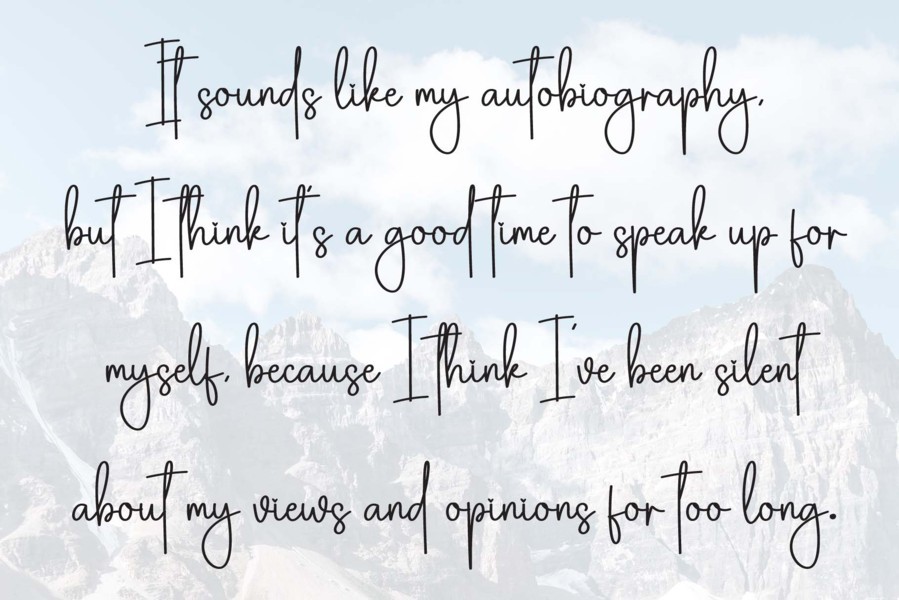 It sounds like my autobiography,
but I think it's a good time to speak up for
myself, because I think I've been silent
about my views and opinions for too long.